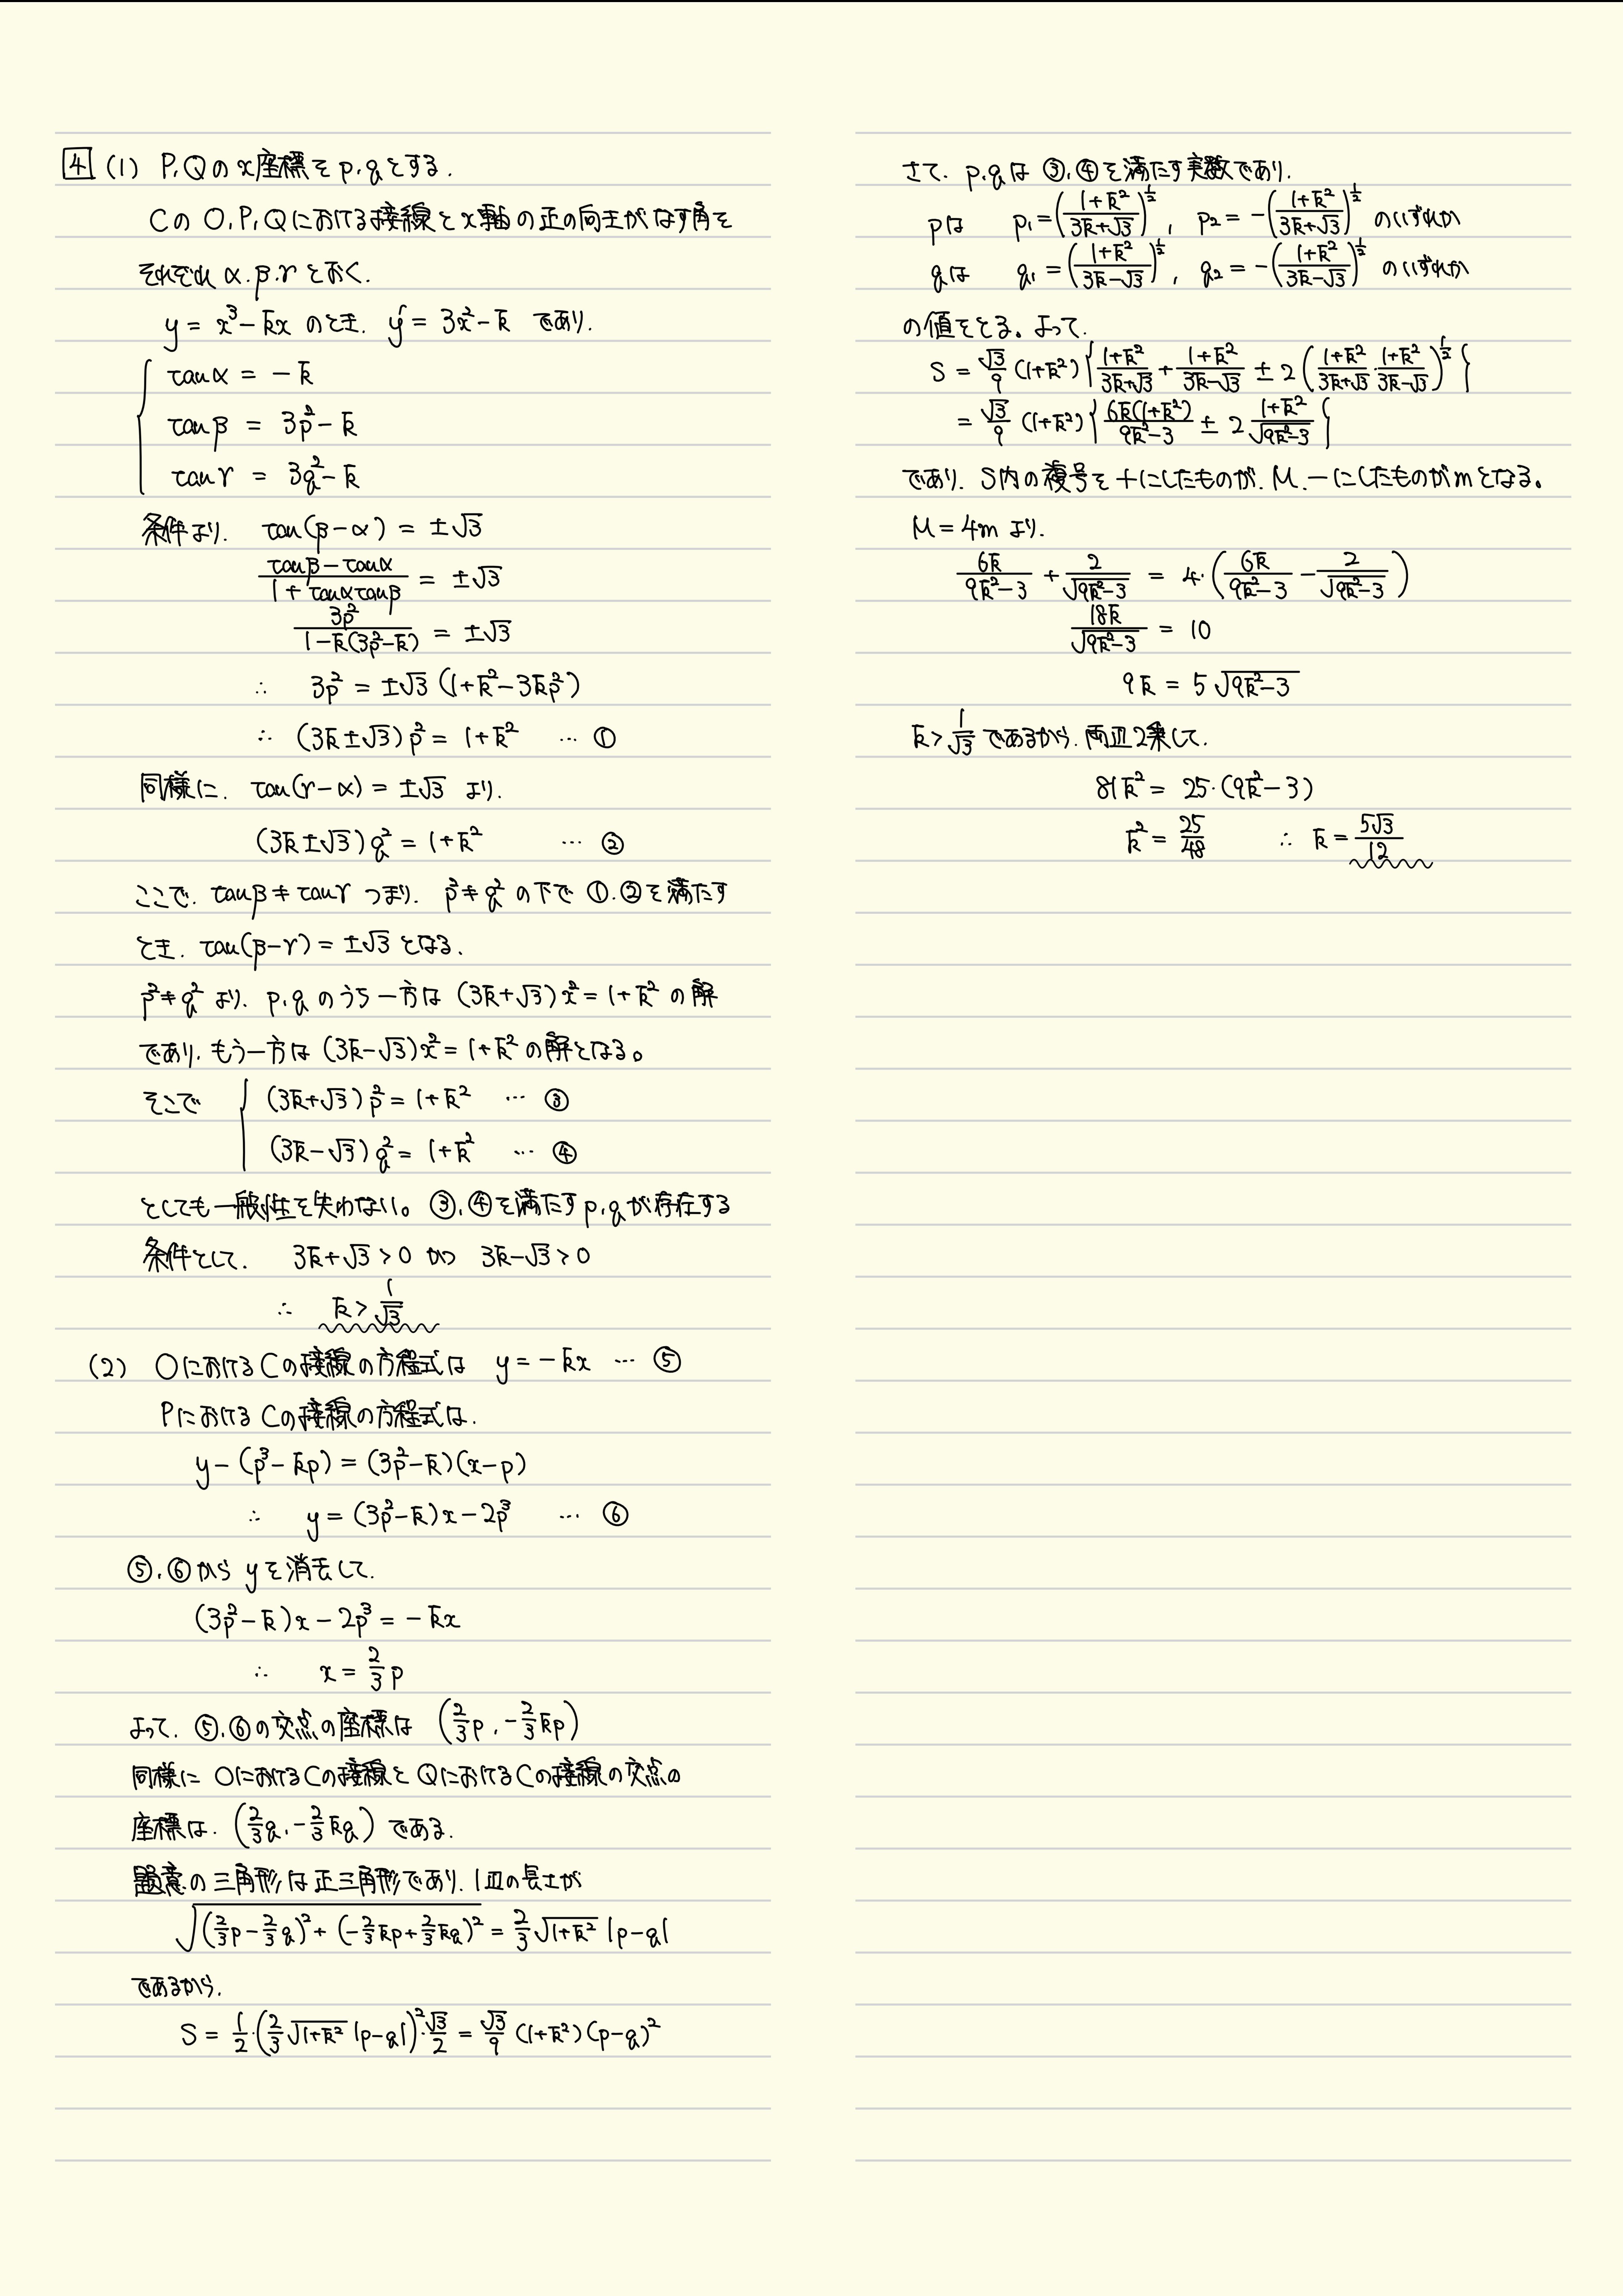 4 (1) P,Qのx座標をp,qとする.
CのO,P,Qにおける接線とx軸の正の向きがなす角を
それぞれα,β,γとおく.
y = x³ - kx のとき. y' = 3x² - k であり.
tanα = -k
tanβ = 3p² - k
tanγ = 3q² - k
条件より. tan(β-α) = ±√3
(tanβ - tanα)/(1 + tanαtanβ) = ±√3
3p²/(1-k(3p²-k)) = ±√3
∴ 3p² = ±√3 (1+k²-3kp²)
∴ (3k±√3)p² = 1+k² … ①
同様に. tan(γ-α) = ±√3 より.
(3k±√3)q² = 1+k² … ②
ここで. tanβ≠tanγ つまり. p²≠q² の下で ①.②を満たす
とき. tan(β-γ) = ±√3 となる.
p²≠q² より. p,q のうち一方は (3k+√3)x² = 1+k² の解
であり. もう一方は (3k-√3)x² = 1+k² の解となる。
そこで (3k+√3)p² = 1+k² … ③
(3k-√3)q² = 1+k² … ④
としても一般性を失わない。③,④を満たすp,qが存在する
条件として. 3k+√3>0 かつ 3k-√3>0
∴ k > 1/√3
(2) OにおけるCの接線の方程式は y = -kx … ⑤
PにおけるCの接線の方程式は.
y - (p³-kp) = (3p²-k)(x-p)
∴ y = (3p²-k)x - 2p³ … ⑥
⑤,⑥から yを消去して.
(3p²-k)x - 2p³ = -kx
∴ x = 2/3 p
よって. ⑤,⑥の交点の座標は (2/3 p, -2/3 kp)
同様に OにおけるCの接線と QにおけるCの接線の交点の
座標は. (2/3 q, -2/3 kq) である.
題意の三角形は正三角形であり. 1辺の長さが
√((2/3 p - 2/3 q)² + (-2/3 kp + 2/3 kq)²) = 2/3 √(1+k²) |p-q|
であるから.
S = 1/2・(2/3 √(1+k²) |p-q|)²・√3/2 = √3/9 (1+k²)(p-q)²
さて. p,qは ③,④を満たす実数であり.
pは p₁ = ((1+k²)/(3k+√3))^(1/2), p₂ = -((1+k²)/(3k+√3))^(1/2) のいずれか
qは q₁ = ((1+k²)/(3k-√3))^(1/2), q₂ = -((1+k²)/(3k-√3))^(1/2) のいずれか
の値をとる。よって.
S = √3/9 (1+k²){(1+k²)/(3k+√3) + (1+k²)/(3k-√3) ± 2((1+k²)/(3k+√3)・(1+k²)/(3k-√3))^(1/2)}
= √3/9 (1+k²){6k(1+k²)/(9k²-3) ± 2 (1+k²)/√(9k²-3)}
であり. S内の複号を+にしたものが. M. -にしたものがmとなる。
M = 4m より.
6k/(9k²-3) + 2/√(9k²-3) = 4・(6k/(9k²-3) - 2/√(9k²-3))
18k/√(9k²-3) = 10
9k = 5√(9k²-3)
k > 1/√3 であるから. 両辺2乗して.
81k² = 25・(9k²-3)
k² = 25/48 ∴ k = 5√3/12